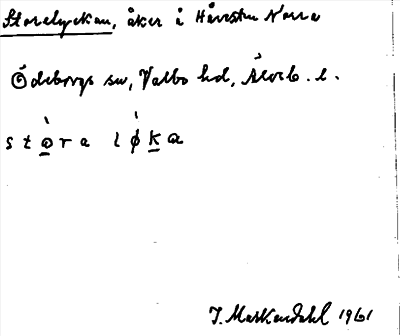 Storelyckan, åker å Håvesten Norra
Ödeborgs sn, Valbo hd, Älvsb. l.
stɷ̀ra lø̀ka
J. Markendahl 1961